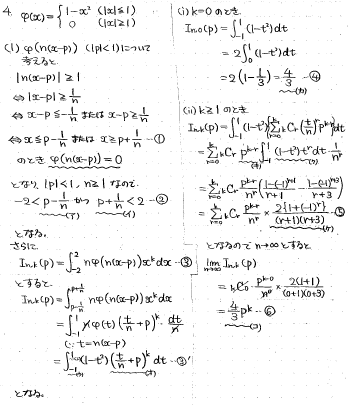 4. φ(x)={1-x² (|x|≦1)
0 (|x|≧1)
(1) φ(n(x-p)) (|p|<1)について
考えると
|n(x-p)|≧1
⇔|x-p|≧1/n
⇔ x-p≦-1/n または x-p≧1/n
⇔ x≦p-1/n または x≧p+1/n -①
のとき φ(n(x-p))=0
となり、|p|<1, n≧1なので、
-2<p-1/n かつ p+1/n<2 -②
(ア) (イ)
となる。
さらに
In,k(p)=∫_{-2}^{2} nφ(n(x-p))x^k dx -③
とすると
In,k(p)=∫_{p-1/n}^{p+1/n} nφ(n(x-p))x^k dx
=∫_{-1}^{1} nφ(t)(t/n+p)^k dt/n
(∵t=n(x-p))
=∫_{-1}^{1}(1-t²)(t/n+p)^k dt -③'
となる。
(i) k=0のとき
In,0(p)=∫_{-1}^{1}(1-t²)dt
=2∫_{0}^{1}(1-t²)dt
=2(1-1/3)=4/3 -④
(ii) k≧1のとき
In,k(p)=∫_{-1}^{1}(1-t²){Σ_{r=0}^{k} kCr (t/n)^r p^{k-r}}dt
=Σ_{r=0}^{k} kCr p^{k-r}∫_{-1}^{1}(1-t²)t^r dt 1/n^r
=Σ_{r=0}^{k} kCr p^{k-r}/n^r {(1-(-1)^{r+1})/(r+1) - (1-(-1)^{r+3})/(r+3)}
=Σ_{r=0}^{k} kCr p^{k-r}/n^r × 2{1+(-1)^r}/((r+1)(r+3)) -⑤
となるので n→∞とすると
lim_{n→∞} In,k(p)
=kC0・p^{k-0}/n^0 × 2(1+1)/((0+1)(0+3))
=4/3 p^k -⑥